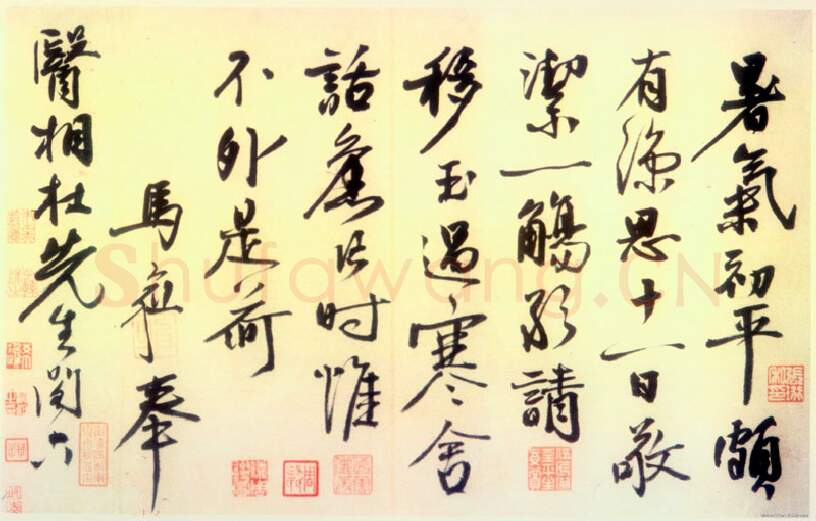 暑氣初平頗
有涼思十一日敬
潔一觴請
移玉過寒舍
話舊片时惟
不外是荷
馬琬奉
醫相杜先生閣下
Shufawang.CN